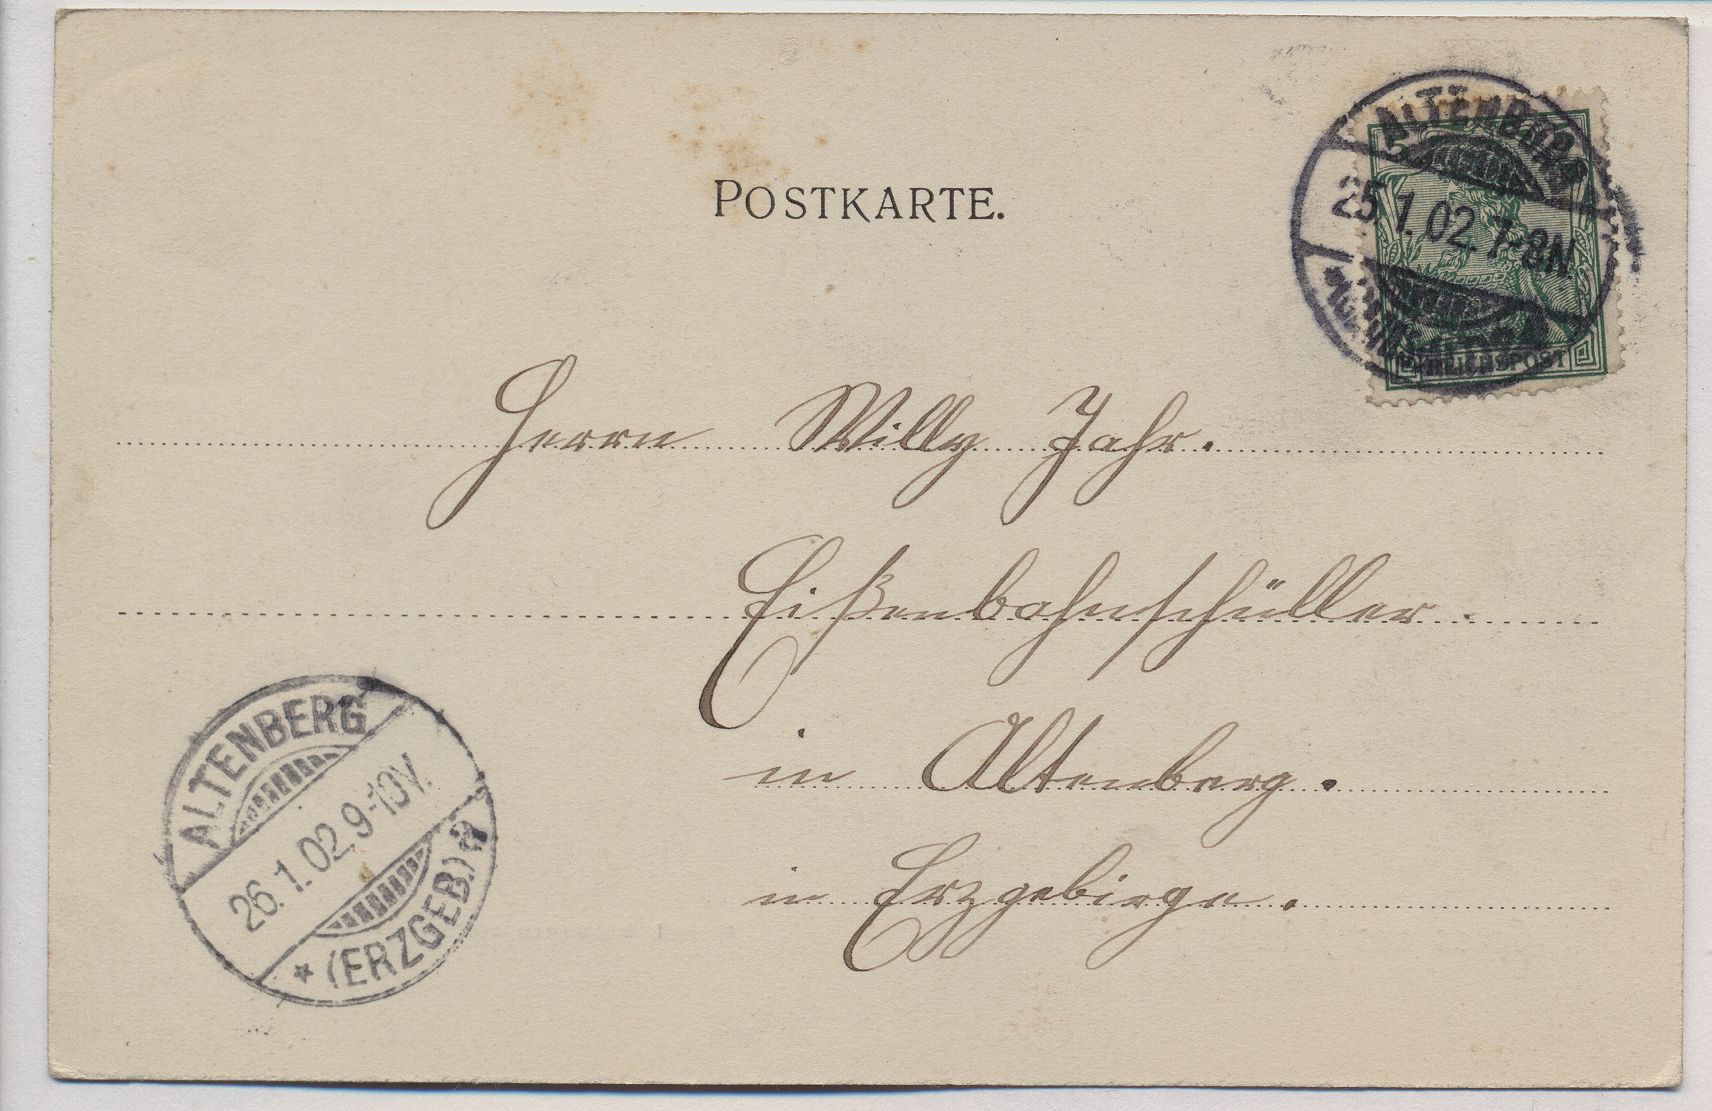 POSTKARTE.
ALTENBURG
25.1.02.7-8N
5
REICHSPOST
Herrn Willy Jahr.
Eißenbahnschüller.
in Altenberg.
in Erzgebirge.
ALTENBERG
26.1.02.9-10V.
* (ERZGEB.) a